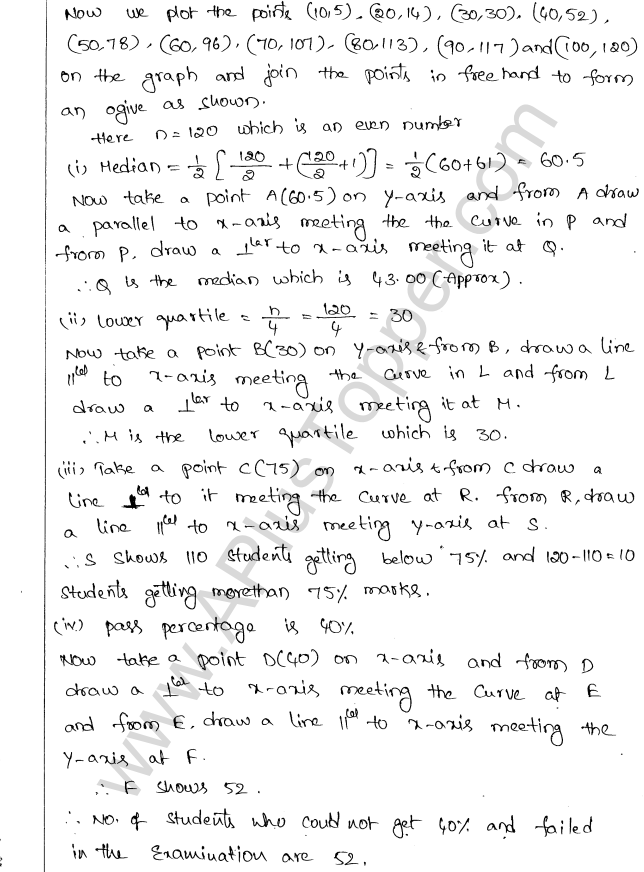 Now we plot the points (10,5), (20,14), (30,30), (40,52),
(50,78), (60,96), (70,107), (80,113), (90,117) and (100,120)
on the graph and join the points in free hand to form
an ogive as shown.
Here n=120 which is an even number
(i) Median = 1/2 [120/2 + (120/2 + 1)] = 1/2 (60+61) = 60.5
Now take a point A(60.5) on y-axis and from A draw
a parallel to x-axis meeting the the curve in P and
from P, draw a ⊥lar to x-axis meeting it at Q.
∴ Q is the median which is 43.00 (Approx).
(ii) lower quartile = n/4 = 120/4 = 30
Now take a point B(30) on y-axis & from B, draw a line
||lel to x-axis meeting the curve in L and from L
draw a ⊥lar to x-axis meeting it at M.
∴ M is the lower quartile which is 30.
(iii) Take a point C(75) on x-axis & from C draw a
line ⊥lar to it meeting the curve at R. from R, draw
a line ||lel to x-axis meeting y-axis at S.
∴ S shows 110 students getting below 75% and 120-110=10
students getting morethan 75% marks.
(iv) pass percentage is 40%
Now take a point D(40) on x-axis and from D
draw a ⊥lar to x-axis meeting the curve at E
and from E, draw a line ||lel to x-axis meeting the
y-axis at F.
∴ F shows 52.
∴ No. of students who could not get 40% and failed
in the Examination are 52.
www.APlusTopper.com